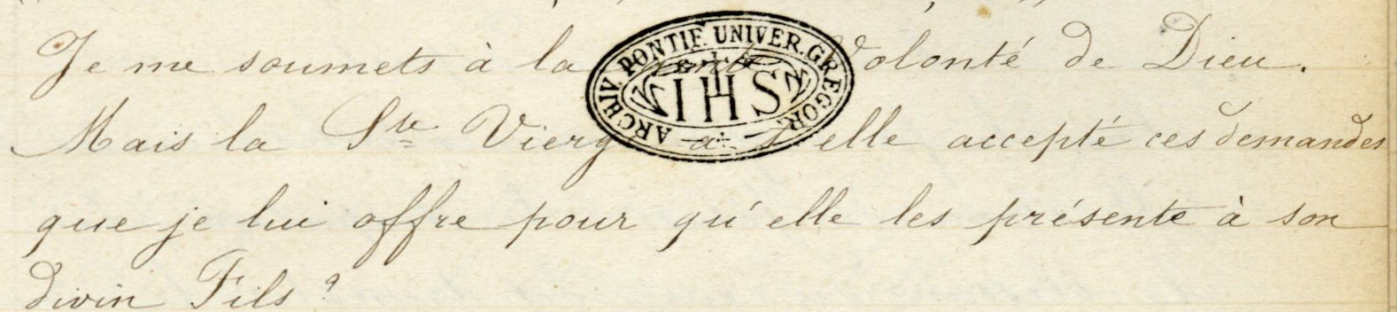 Je me soumets à la sainte Volonté de Dieu.
ARCHIV. PONTIF. UNIVER. GREGOR.
IHS
Mais la Ste Vierge a-t-elle accepté ces demandes
que je lui offre pour qu'elle les présente à son
divin Fils ?